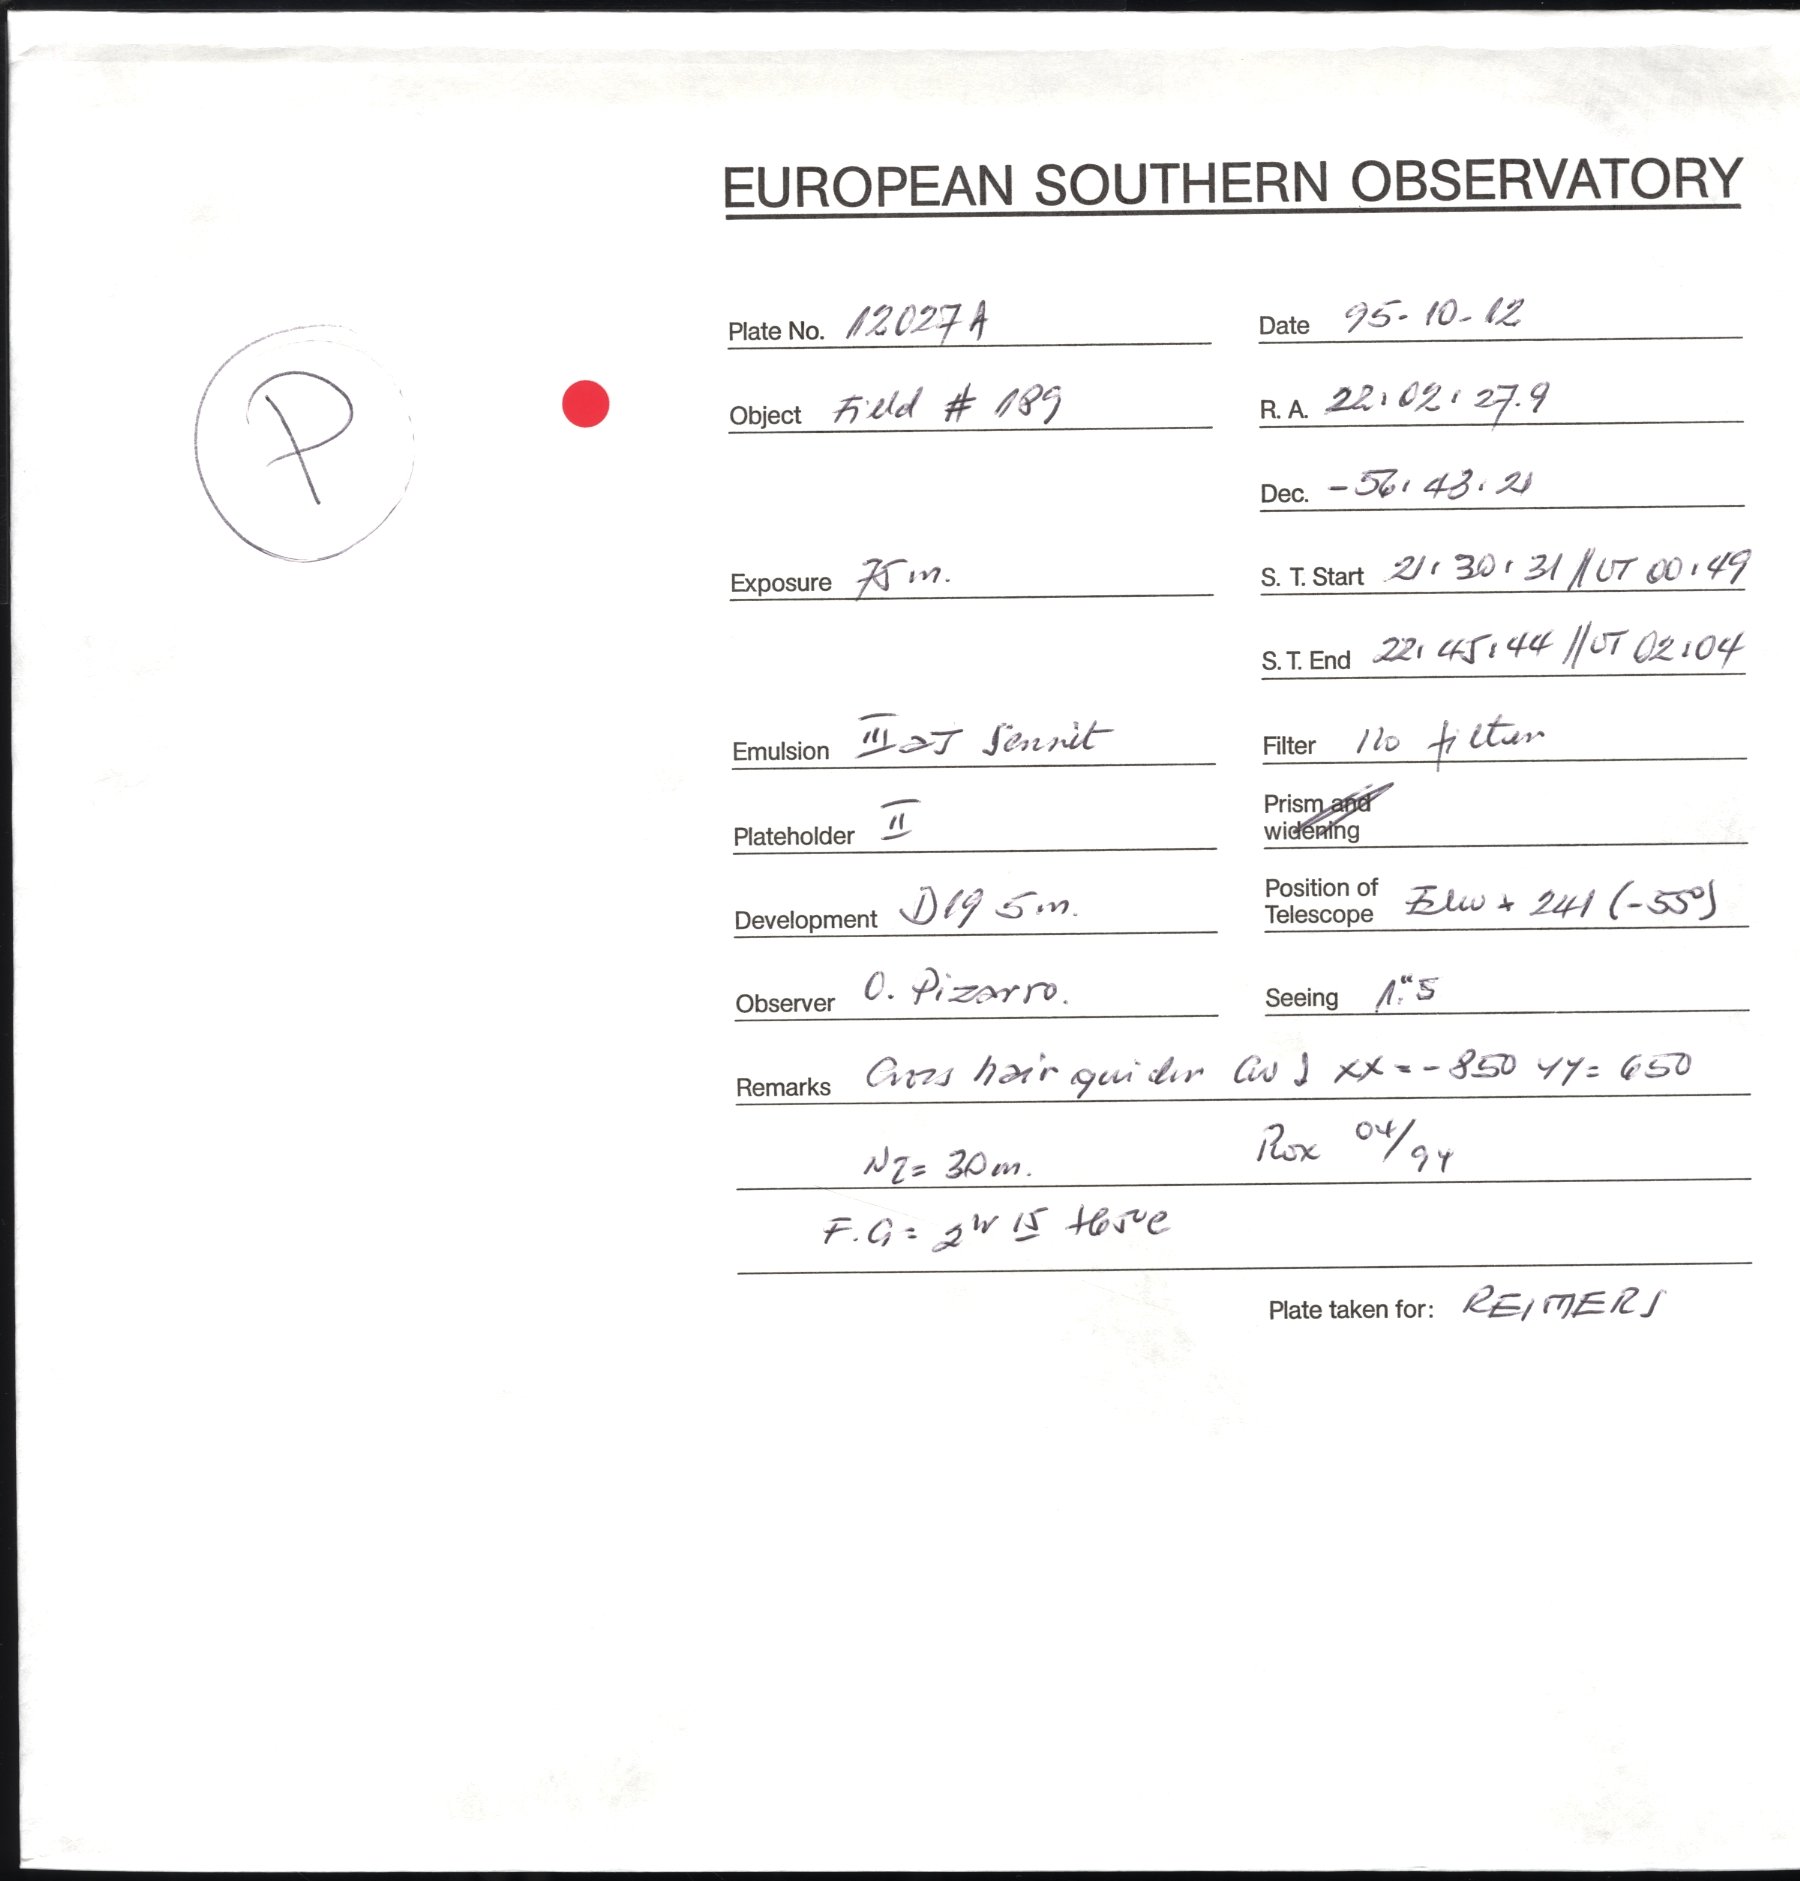 EUROPEAN SOUTHERN OBSERVATORY
Plate No. 12027A
Date 95-10-12
P
Object Field # 189
R. A. 22:02:27.9
Dec. -56:43:21
Exposure 75m.
S. T. Start 21:30:31 // UT 00:49
S. T. End 22:45:44 // UT 02:04
Emulsion IIIaJ
Filter No filter
Plateholder II
Prism and widening
Development D19 5m.
Position of Telescope + 241 (-55°)
Observer O. Pizarro.
Seeing 1."5
Remarks Cross hair guider xx = -850 yy = 650
N2 = 30m.
04/94
F.G =
Plate taken for: REIMERS